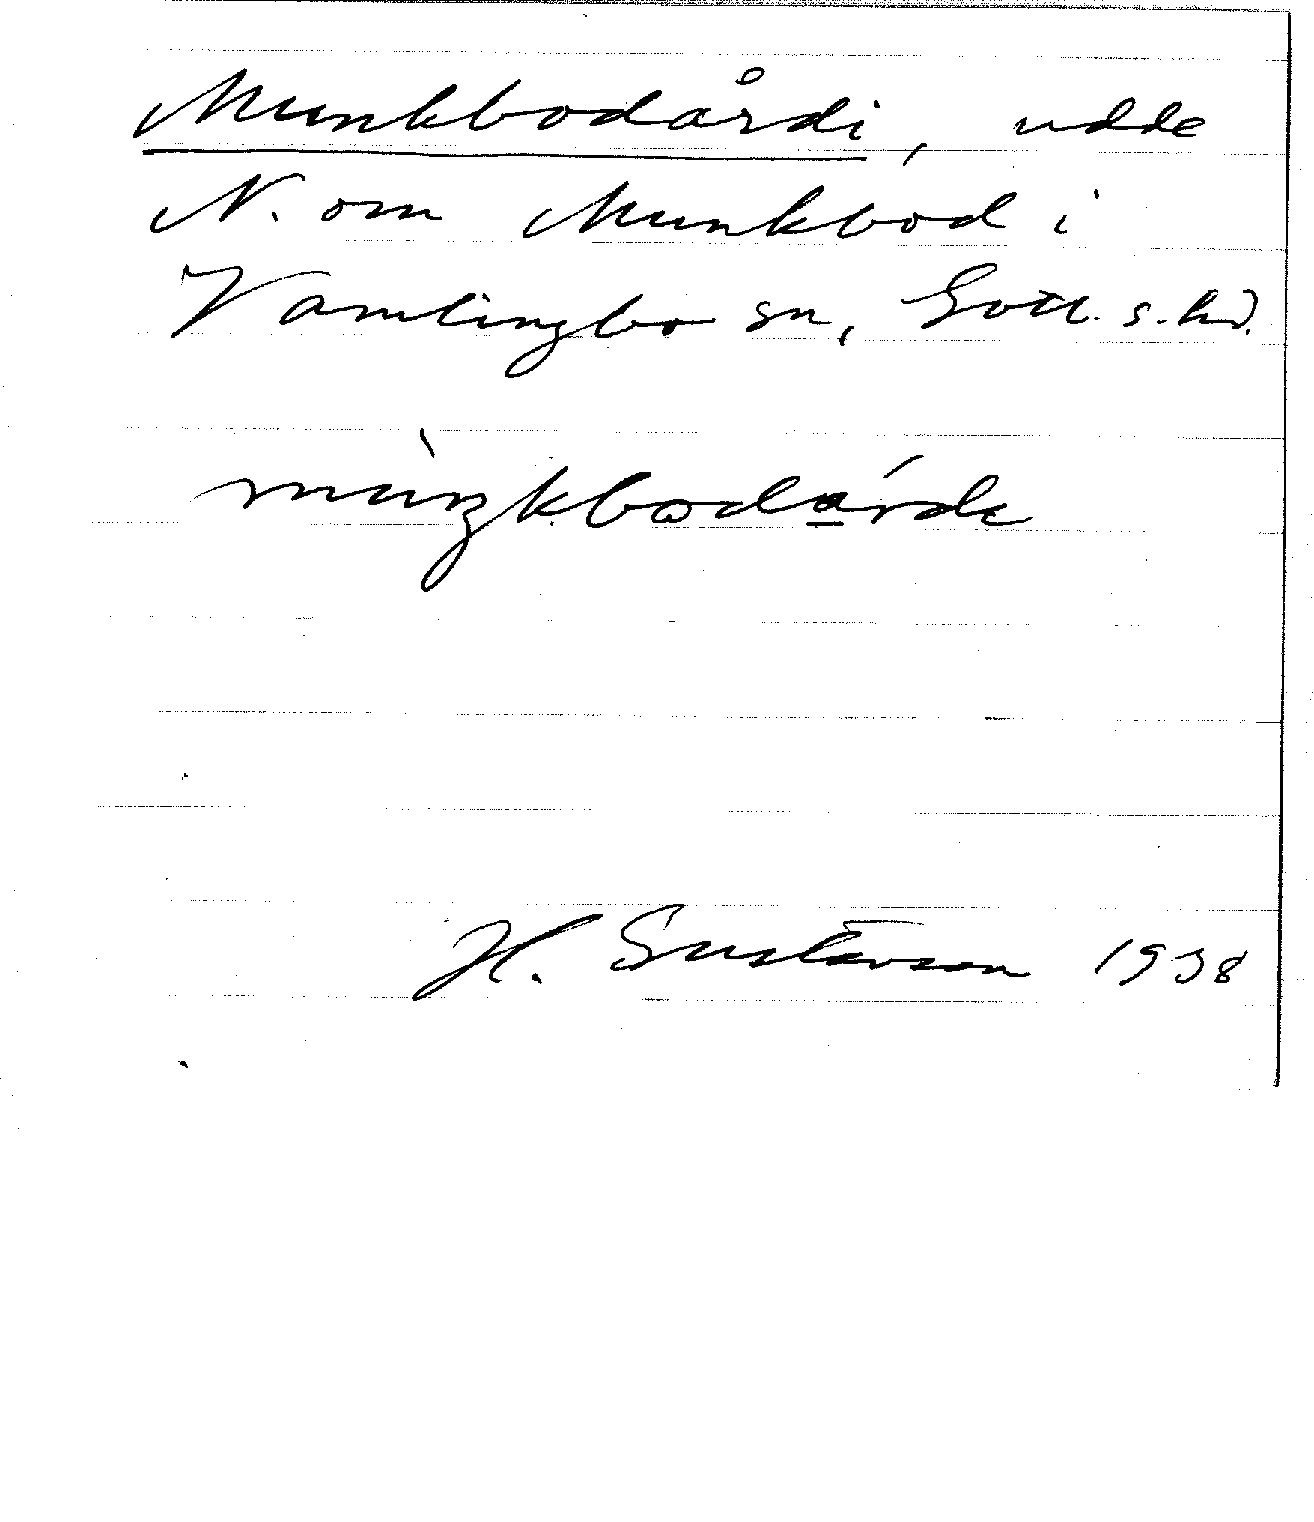 Munkbodårdi, udde
N. om Munkbod i
Vamlingbo sn, Gotl. s. hd.
mùŋkbodárde
H. Gustavson 1938